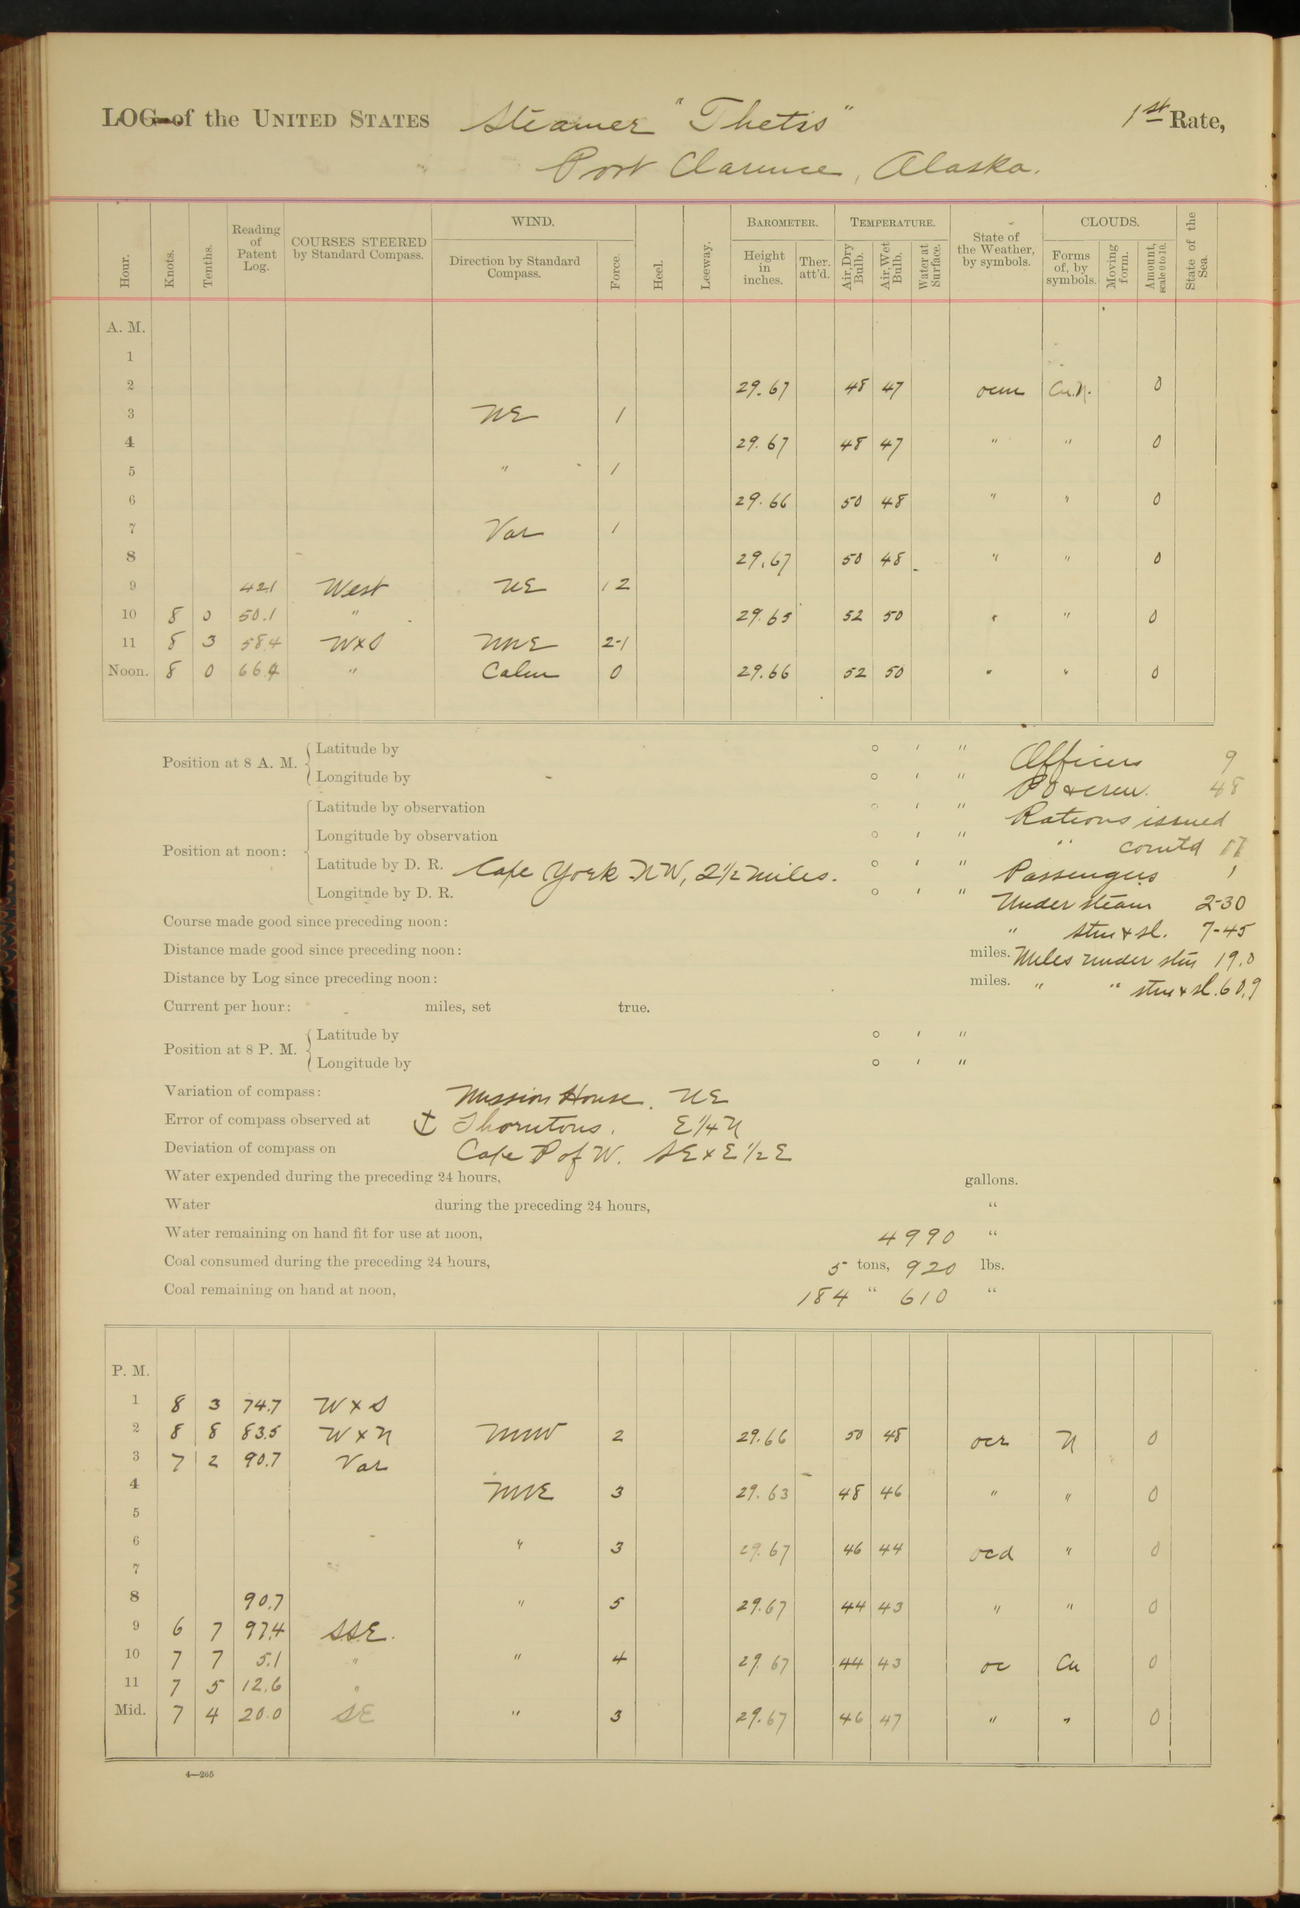 LOG of the UNITED STATES Steamer "Thetis" 1st Rate,
Port Clarence, Alaska.
Hour. Knots. Tenths. Reading of Patent Log. COURSES STEERED by Standard Compass. WIND. Direction by Standard Compass. Force. Heel. Leeway. BAROMETER. Height in inches. Ther. att'd. TEMPERATURE. Air, Dry Bulb. Air, Wet Bulb. Water at Surface. State of the Weather, by symbols. CLOUDS. Forms of, by symbols. Moving form. Amount, scale 0 to 10. State of the Sea.
A. M.
1
2 29.67 48 47 ocm Cu.N. 0
3 NE 1
4 29.67 48 47 " " 0
5 " 1
6 29.66 50 48 " " 0
7 Var 1
8 29.67 50 48 " " 0
9 42.1 West NE 1 2
10 8 0 50.1 " 29.65 52 50 " " 0
11 8 3 58.4 WxS NNE 2-1
Noon. 8 0 66.4 " Calm 0 29.66 52 50 " " 0
Position at 8 A. M. Latitude by ° ' " Officers 9
Longitude by ° ' " PO & crew. 48
Position at noon: Latitude by observation ° ' " Rations issued
Longitude by observation ° ' " " comtd 17
Latitude by D. R. Cape York NW, 2 1/2 miles. ° ' " Passengers 1
Longitude by D. R. ° ' " Under steam 2-30
Course made good since preceding noon: " stm & sl. 7-45
Distance made good since preceding noon: miles. Miles under stm 19.0
Distance by Log since preceding noon: miles. " " stm & sl. 60.9
Current per hour: miles, set true.
Position at 8 P. M. Latitude by ° ' "
Longitude by ° ' "
Variation of compass: Mission House. NE
Error of compass observed at Thorntons. E 1/4 N
Deviation of compass on Cape P of W. SExE 1/2 E
Water expended during the preceding 24 hours, gallons.
Water during the preceding 24 hours, "
Water remaining on hand fit for use at noon, 4990 "
Coal consumed during the preceding 24 hours, 5 tons, 920 lbs.
Coal remaining on hand at noon, 184 " 610 "
P. M.
1 8 3 74.7 WxS
2 8 8 83.5 WxN NNW 2 29.66 50 48 ocr N 0
3 7 2 90.7 Var
4 NNE 3 29.63 48 46 " " 0
5
6 " 3 29.67 46 44 ocd " 0
7
8 90.7 " 5 29.67 44 43 " " 0
9 6 7 97.4 SSE.
10 7 7 5.1 " " 4 29.67 44 43 oc Cu 0
11 7 5 12.6 "
Mid. 7 4 20.0 SE " 3 29.67 46 47 " " 0
4—265